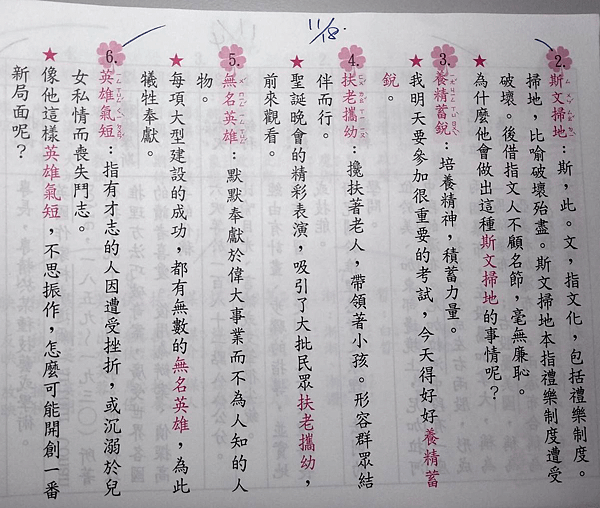 11/18.
2. 斯文掃地：斯，此。文，指文化，包括禮樂制度。
掃地，比喻破壞殆盡。斯文掃地本指禮樂制度遭受
破壞。後借指文人不顧名節，毫無廉恥。
★為什麼他會做出這種斯文掃地的事情呢？
3. 養精蓄銳：培養精神，積蓄力量。
★我明天要參加很重要的考試，今天得好好養精蓄
銳。
4. 扶老攜幼：攙扶著老人，帶領著小孩。形容群眾結
伴而行。
★聖誕晚會的精彩表演，吸引了大批民眾扶老攜幼，
前來觀看。
5. 無名英雄：默默奉獻於偉大事業而不為人知的人
物。
★每項大型建設的成功，都有無數的無名英雄，為此
犧牲奉獻。
6. 英雄氣短：指有才志的人因遭受挫折，或沉溺於兒
女私情而喪失鬥志。
★像他這樣英雄氣短，不思振作，怎麼可能開創一番
新局面呢？